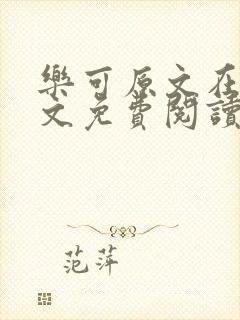 樂可原文在
文免費閱讀
范萍